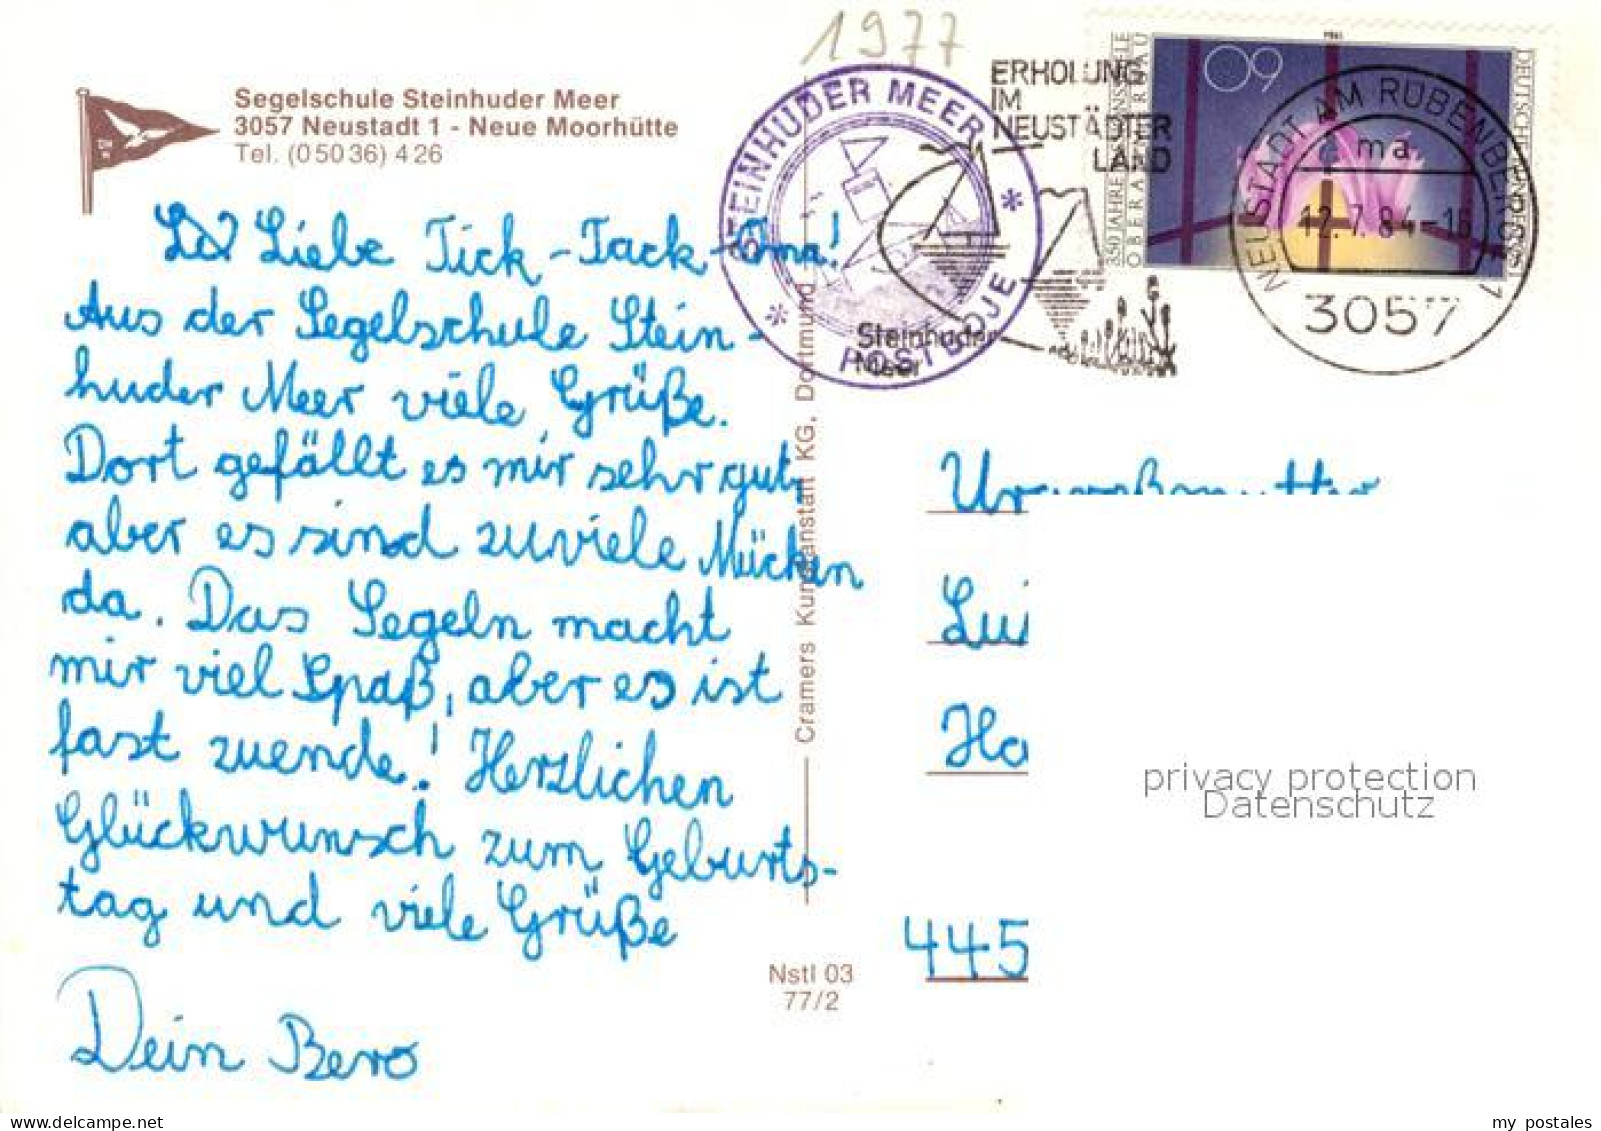 1977
Segelschule Steinhuder Meer
3057 Neustadt 1 - Neue Moorhütte
Tel. (05036) 426
Liebe Tick-Tack-Oma!
Aus der Segelschule Stein-
huder Meer viele Grüße.
Dort gefällt es mir sehr gut,
aber es sind zuviele Mücken
da. Das Segeln macht
mir viel Spaß, aber es ist
fast zuende! Herzlichen
Glückwunsch zum Geburts-
tag und viele Grüße
Dein Bero
Cramers Kunstanstalt KG, Dortmund
Nstl 03
77/2
STEINHUDER MEER
* POSTBOJE *
ERHOLUNG
IM
NEUSTÄDTER
LAND
Steinhuder
Meer
350 JAHRE PASSIONSSPIELE
OBERAMMERGAU
60
DEUTSCHE BUNDESPOST
NEUSTADT AM RÜBENBERGE 1
ma
12.7.84-16
3057
Urgroßmutter
Lui
Ha
445
privacy protection
Datenschutz
my postales